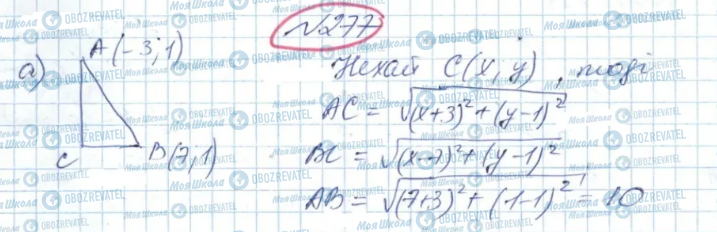 №277
а)
A(-3;1)
C
B(7,1)
Нехай C(x,y), тоді
AC = √(x+3)²+(y-1)²
BC = √(x-7)²+(y-1)²
AB = √(7+3)²+(1-1)² = 10
МояШкола OBOZREVATEL